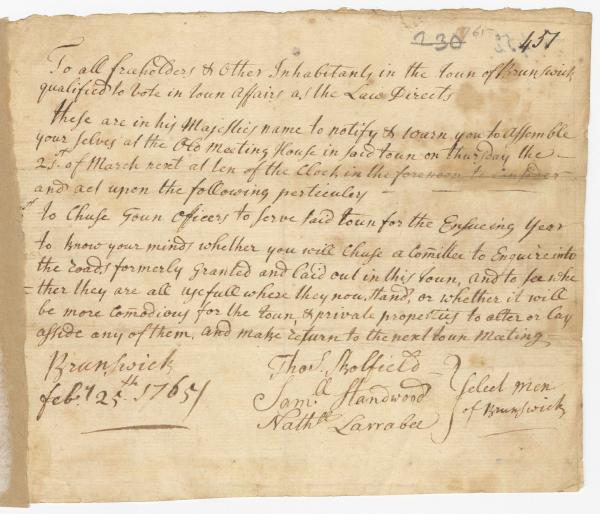 230 1765 457
To all freeholders & Other Inhabitants in the toun of Brunswick
qualified to vote in toun Affairs as the Law Directs
these are in his Majesties name to notify & warn you to Assemble
your selves at the Old Meeting House in said toun on thursday the
21st of March next at ten of the Clock in the forenoon to
and act upon the following perticulers
to Chuse Toun Officers to serve said toun for the Ensueing Year
to Know your minds whether you will Chuse a Comittee to Enquire into
the roads formerly Granted and Laid out in this toun, and to see whe
ther they are all usefull where they now Stand, or whether it will
be more Comodious for the toun, & private properties to alter or Lay
asside any of them, and make return to the next toun Meeting
Brunswick
feb.y 25th 1765
Thos. Skolfield
Saml. Standwood
Nathl. Larrabee
Select men
of Brunswick